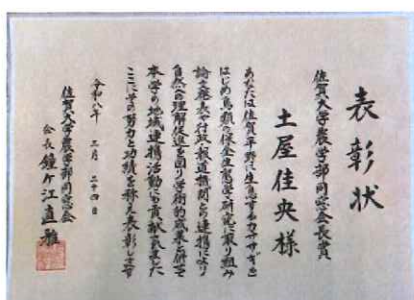 表彰状
佐賀大学農学部同窓会長賞
土屋佳央様
あなたは佐賀平野に生息するカササギを
はじめ鳥類の保全生態学の研究に取り組み
論文発表や行政や報道機関との連携により
自然への理解促進を図り学術的成果と併せて
本学の地域連携活動にも貢献されました
ここにその努力と功績を称え表彰します
令和八年 三月 二十四日
佐賀大学農学部同窓会
会長 鐘ヶ江直雅